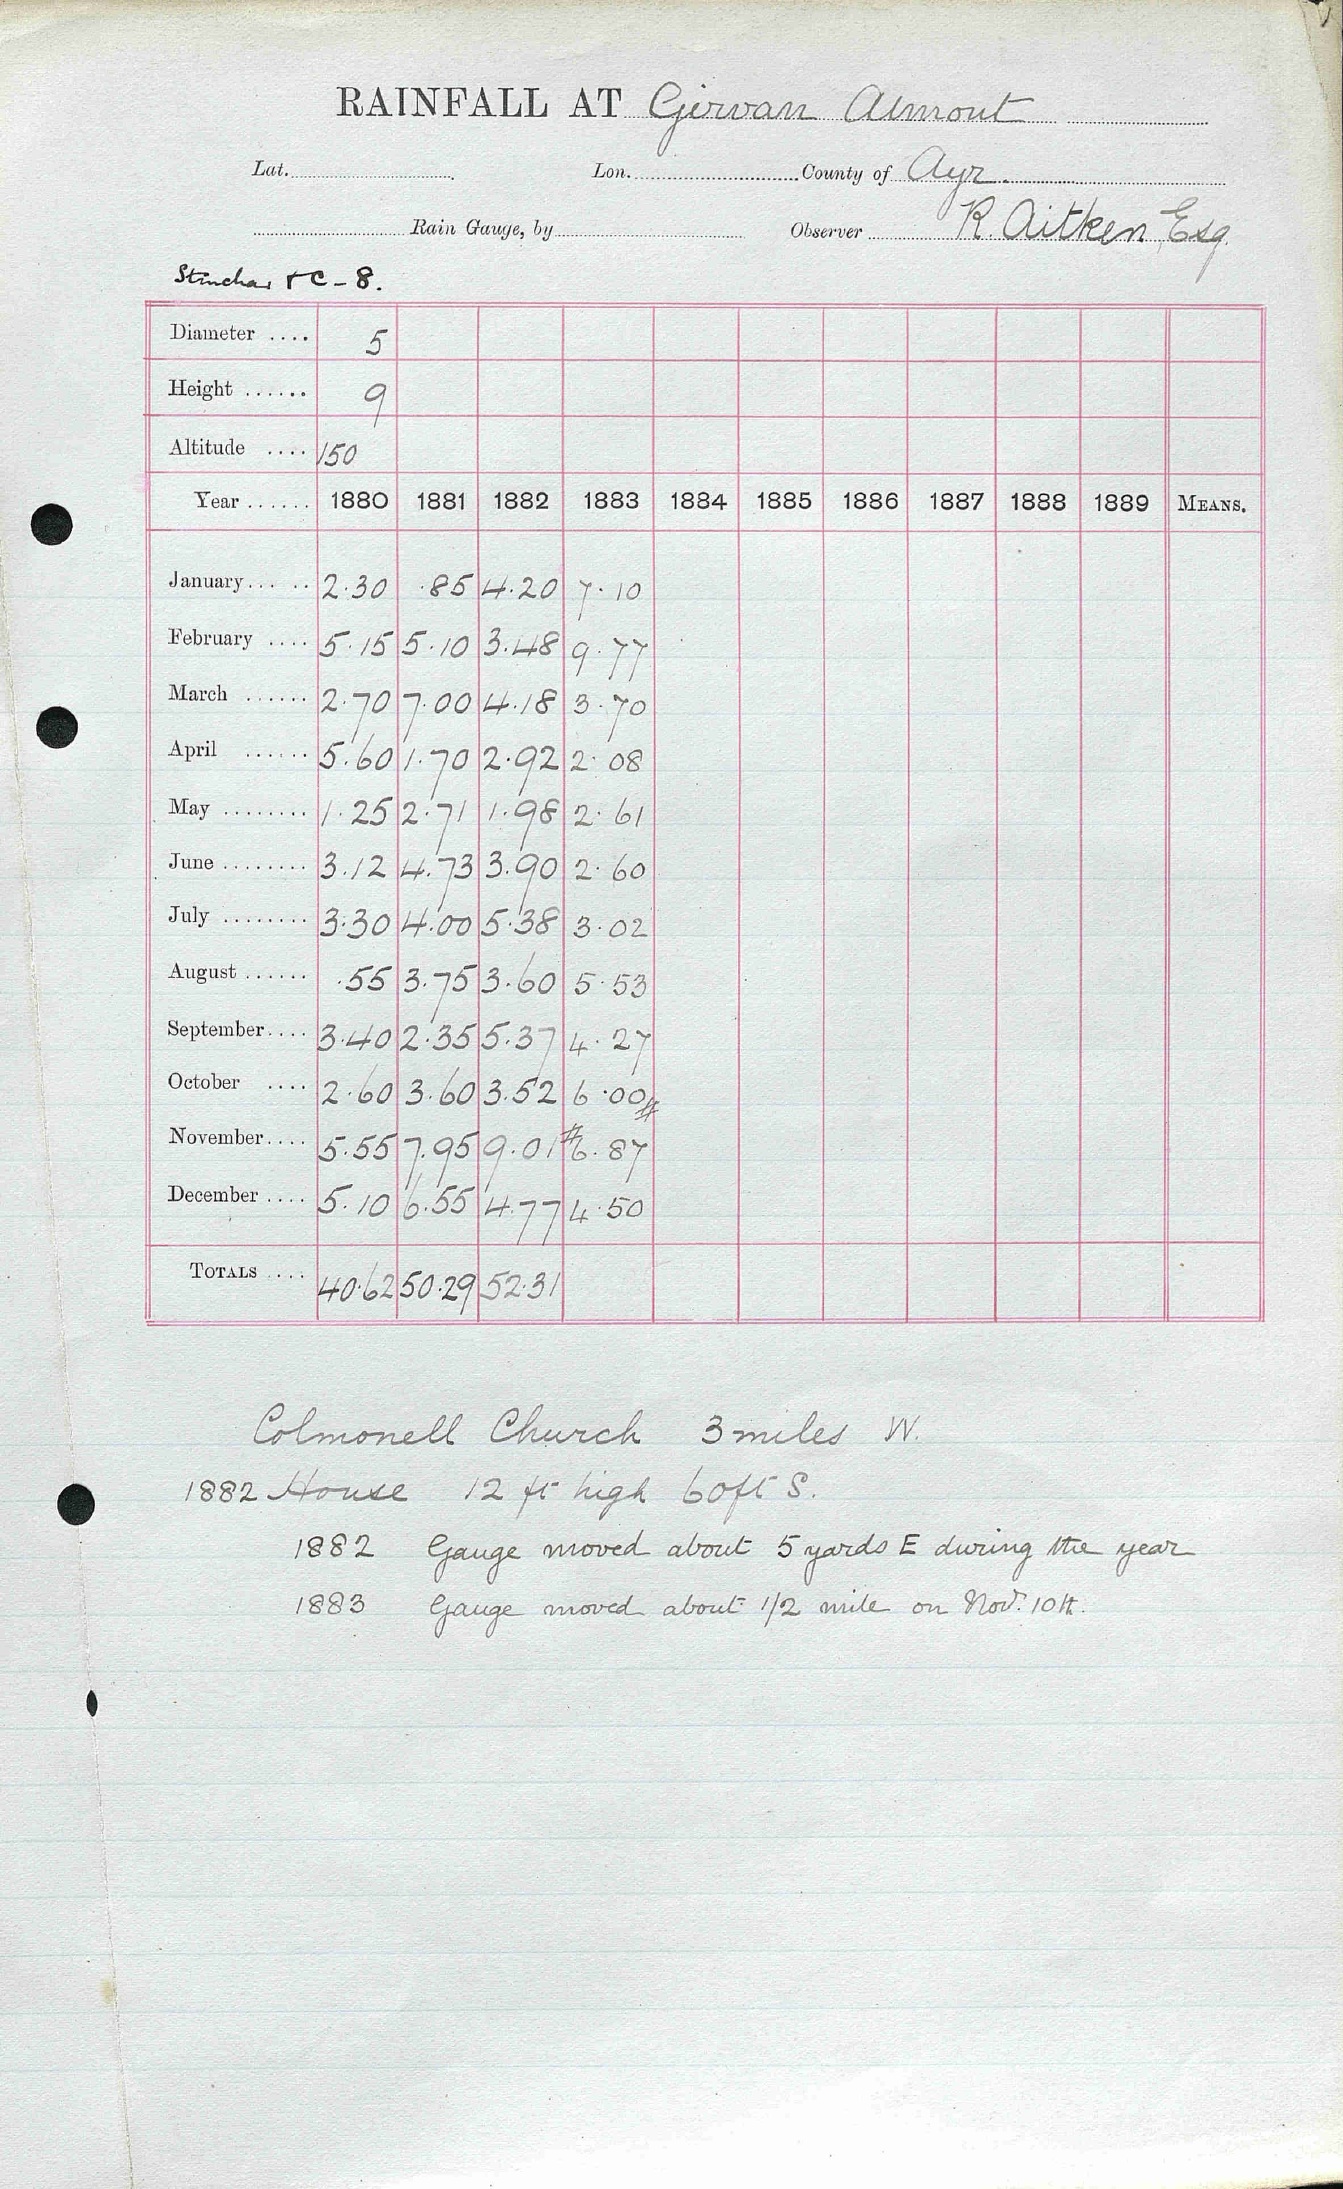 RAINFALL AT Girvan Almont
Lat. Lon. County of Ayr.
Rain Gauge, by Observer R. Aitken, Esq.
Stinchar & C - 8.
Diameter .... 5
Height ...... 9
Altitude .... 150
Year ...... 1880 1881 1882 1883 1884 1885 1886 1887 1888 1889 MEANS.
January ..... 2.30 .85 4.20 7.10
February .... 5.15 5.10 3.48 9.77
March ...... 2.70 7.00 4.18 3.70
April ...... 5.60 1.70 2.92 2.08
May ........ 1.25 2.71 1.98 2.61
June ........ 3.12 4.73 3.90 2.60
July ........ 3.30 4.00 5.38 3.02
August ...... .55 3.75 3.60 5.53
September.... 3.40 2.35 5.37 4.27
October .... 2.60 3.60 3.52 6.00#
November.... 5.55 7.95 9.01 #6.87
December .... 5.10 6.55 4.77 4.50
TOTALS .... 40.62 50.29 52.31
Colmonell Church 3 miles W.
1882 House 12 ft high 60ft S.
1882 Gauge moved about 5 yards E during the year
1883 Gauge moved about 1/2 mile on Nov. 10th.